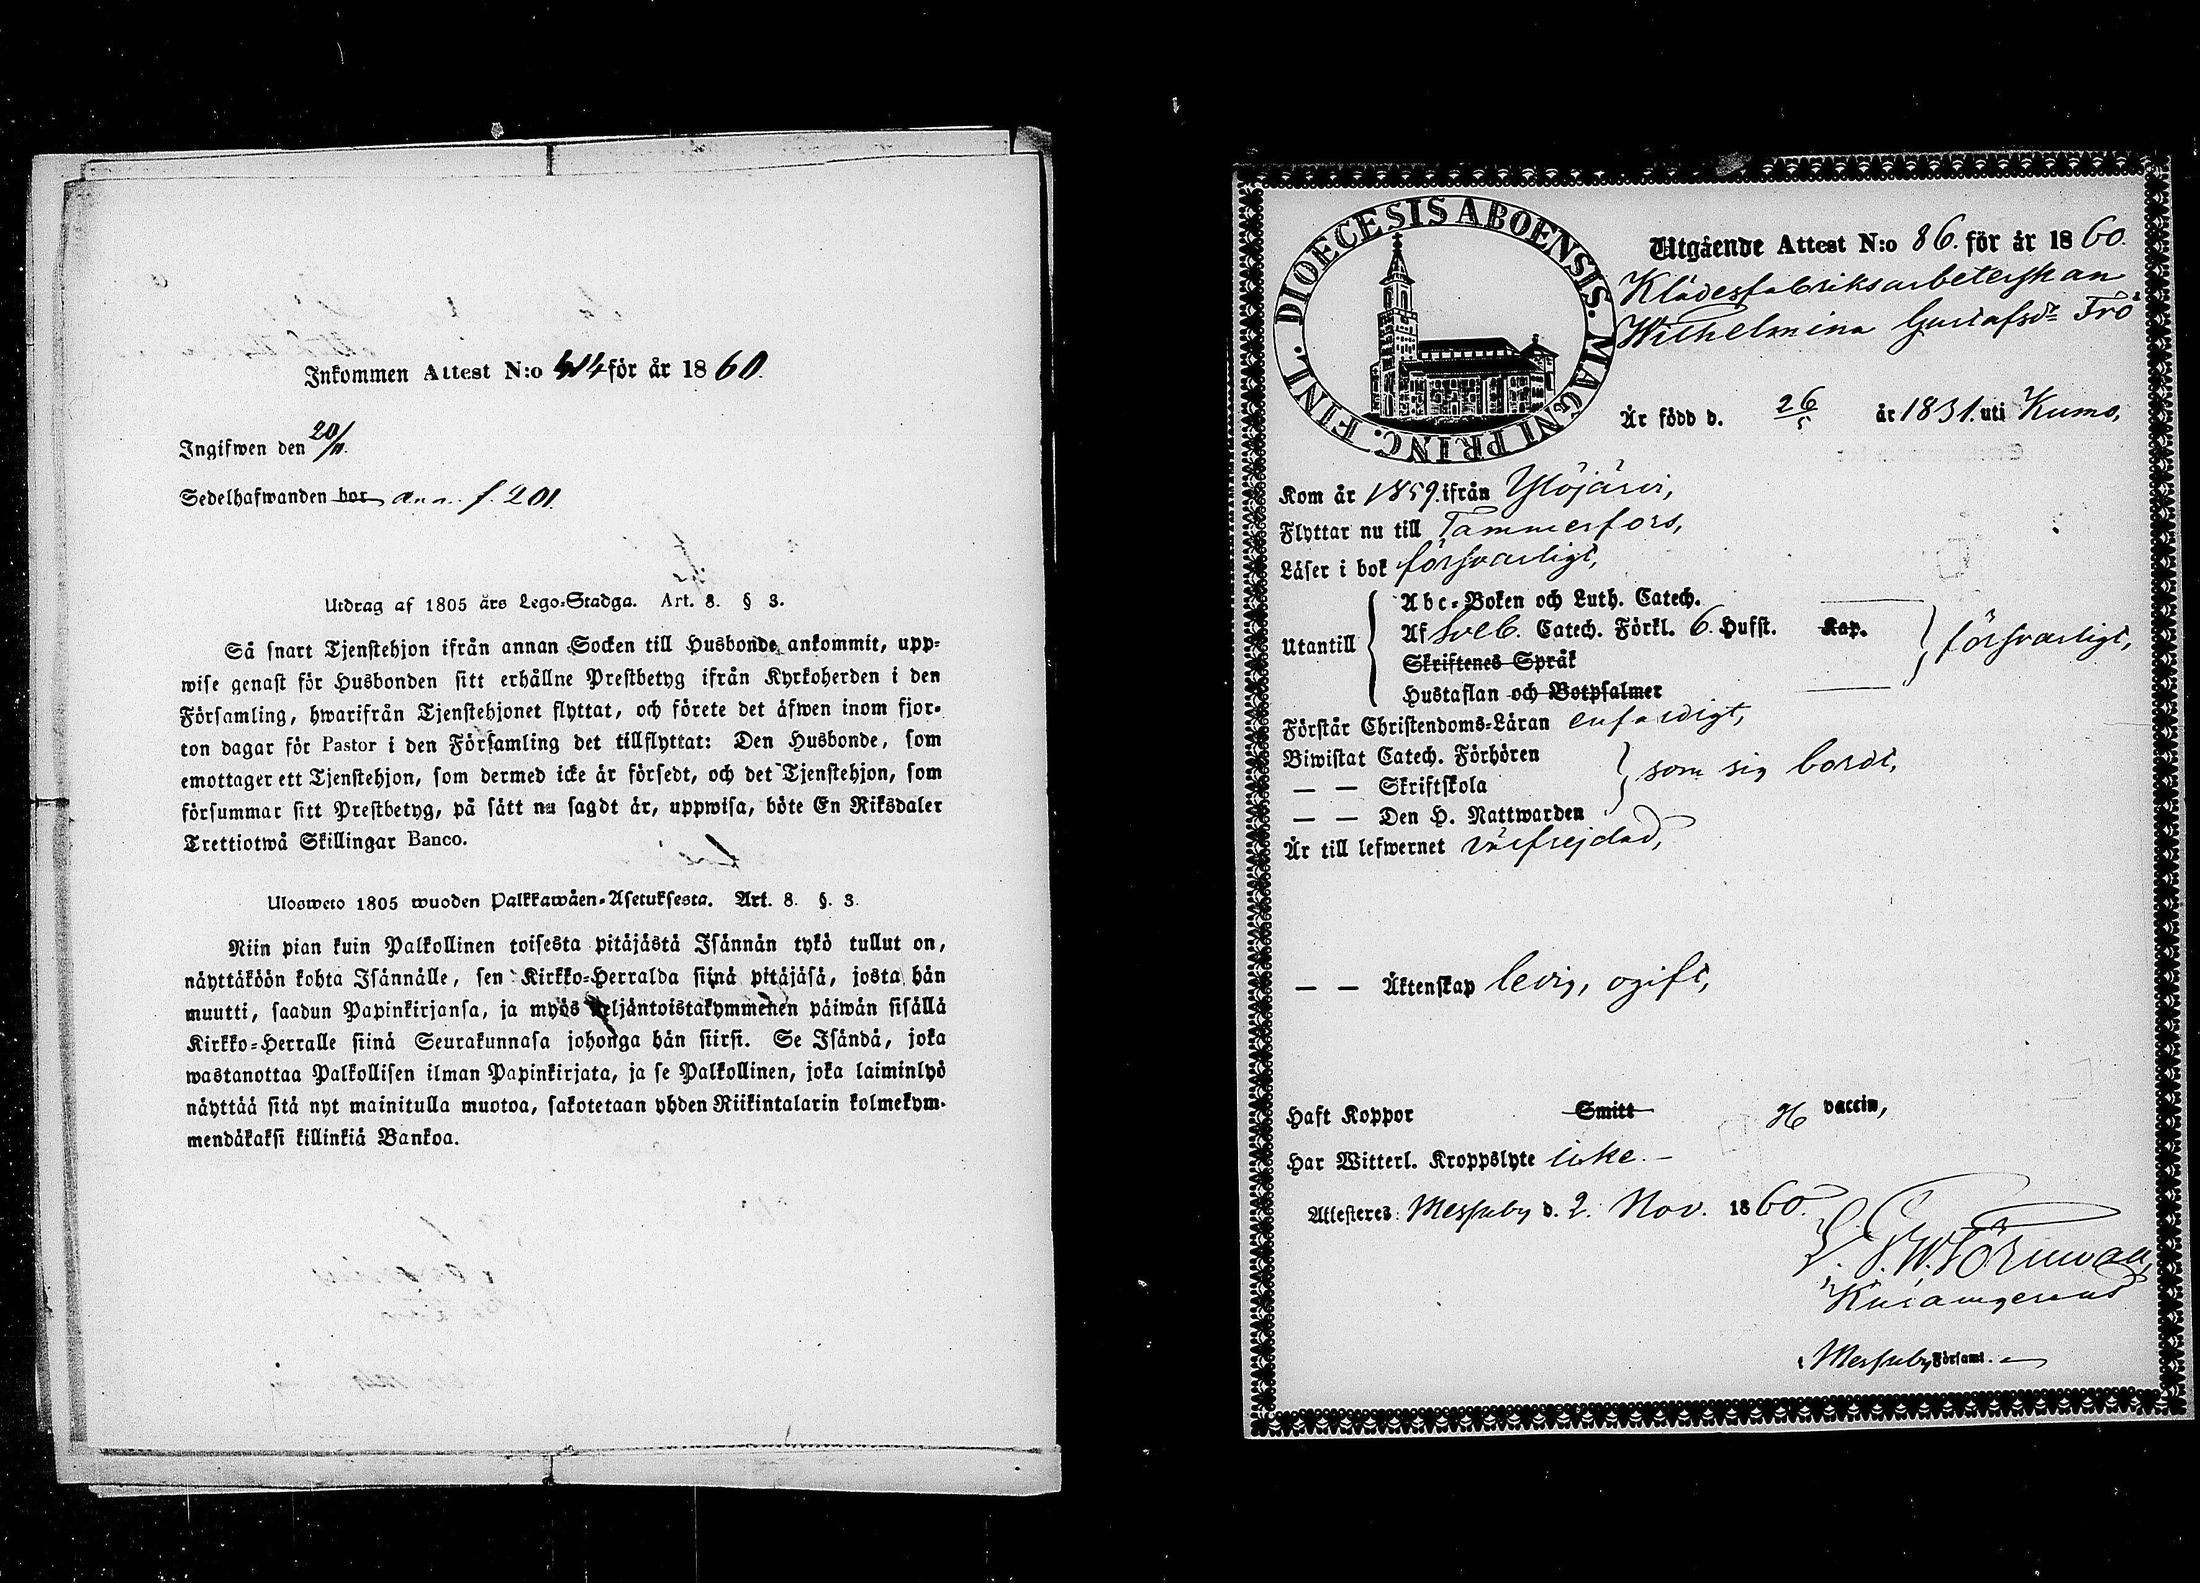 Inkommen Attest N:o 414 för år 1860.
Ingifwen den 20/11.
Sedelhafwanden bor ann. f. 201.
Utdrag af 1805 års Lego-Stadga. Art. 8. § 3.
Så snart Tjenstehjon ifrån annan Socken till Husbonde ankommit, upp-
wise genast för Husbonden sitt erhållne Prestbetyg ifrån Kyrkoherden i den
Församling, hwarifrån Tjenstehjonet flyttat, och förete det äfwen inom fjor-
ton dagar för Pastor i den Församling det tillflyttat: Den Husbonde, som
emottager ett Tjenstehjon, som dermed icke är försedt, och det Tjenstehjon, som
försummar sitt Prestbetyg, på sätt nu sagdt är, uppwisa, böte En Riksdaler
Trettiotwå Skillingar Banco.
Ulosweto 1805 wuoden Palkkawäen-Asetuksesta. Art. 8. §. 3.
Niin pian kuin Palkollinen toisesta pitäjästä Isännän tykö tullut on,
näyttäköön kohta Isännälle, sen Kirkko-Herralda siinä pitäjäsä, josta hän
muutti, saadun Papinkirjansa, ja myös neljäntoistakymmenen päiwän sisällä
Kirkko-Herralle siinä Seurakunnasa johonga hän siirsi. Se Isändä, joka
wastanottaa Palkollisen ilman Papinkirjata, ja se Palkollinen, joka laiminlyö
näyttää sitä nyt mainitulla muotoa, sakotetaan yhden Riikintalarin kolmekym-
mendäkaksi killinkiä Bankoa.
DIOECESIS ABOENSIS. MAGNI PRINC. FINL.
Utgående Attest N:o 86. för år 1860.
Klädesfabriksarbeterskan
Wilhelmina Gustafsdr Frö
Är född d. 26/5 år 1831. uti Kumo,
Kom år 1859. ifrån Ylöjärvi,
Flyttar nu till Tammerfors,
Läser i bok försvarligt,
Utantill
Abc-Boken och Luth. Catech.
Af Sveb. Catech. Förkl. 6. Hufst. Kap.
Skriftenes Språk
Hustaflan och Botpsalmer
försvarligt,
Förstår Christendoms-Läran enfaldigt,
Biwistat Catech. Förhören
— — Skriftskola
— — Den H. Nattwarden
som sig bordt,
Är till lefwernet välfrejdad,
— — Äktenskap ledig, ogift,
Haft Koppor Smitt vaccin,
Har Witterl. Kroppslyte icke. —
Attesteres: Messuby d. 2. Nov. 1860.
Messuby Församl.